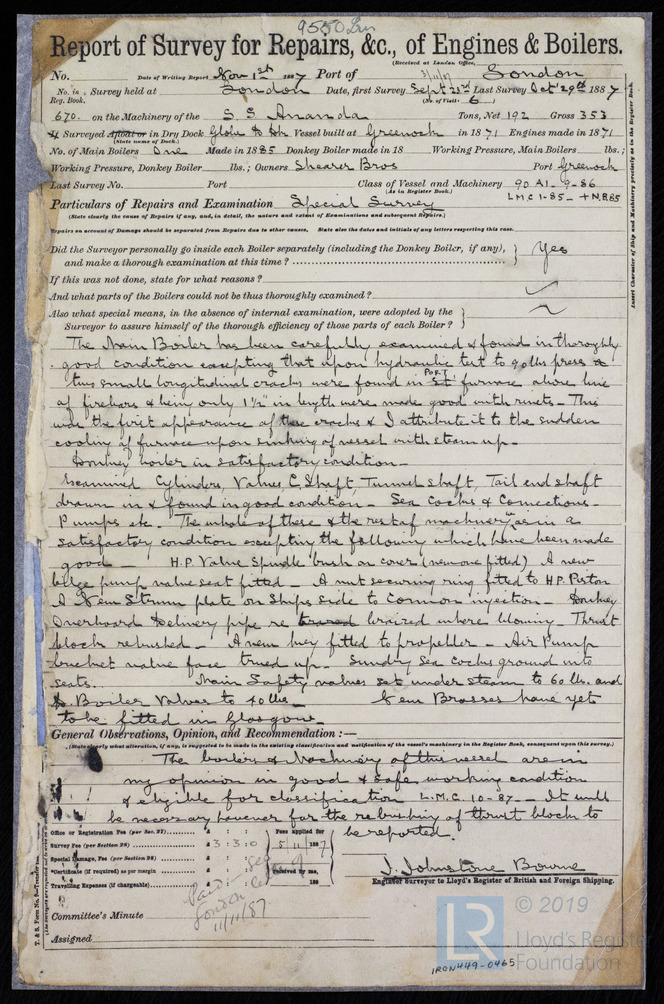 9550 Lon
Report of Survey for Repairs, &c., of Engines & Boilers.
(Received at London Office,
No. Date of Writing Report Nov 1st 1887 Port of London
3/11/87
No. in Survey held at London Date, first Survey Sept 23rd Last Survey Oct 29th 1887
Reg. Book. (No. of Visits 6)
670. on the Machinery of the S.S Ananda Tons, Net 192 Gross 353
Surveyed Afloat or in Dry Dock Globe Vessel built at Greenock in 1871 Engines made in 1871
(State name of Dock.)
No. of Main Boilers One Made in 1885 Donkey Boiler made in 18 Working Pressure, Main Boilers lbs.;
Working Pressure, Donkey Boiler lbs.; Owners Shearer Bros Port Greenock
Last Survey No. Port Class of Vessel and Machinery 90 A1 - 9-86
(as in Register Book.) LMC 1-85 - + N.B 85
Particulars of Repairs and Examination Special Survey
(State clearly the cause of Repairs if any, and, in detail, the nature and extent of Examinations and subsequent Repairs.)
Repairs on account of Damage should be separated from Repairs due to other causes. State also the dates and initials of any letters respecting this case.
Insert Character of Ship and Machinery precisely as in the Register Book.
Did the Surveyor personally go inside each Boiler separately (including the Donkey Boiler, if any), } Yes
and make a thorough examination at this time ?
If this was not done, state for what reasons ?
And what parts of the Boilers could not be thus thoroughly examined ?
Also what special means, in the absence of internal examination, were adopted by the }
Surveyor to assure himself of the thorough efficiency of those parts of each Boiler ?
The Main Boiler has been carefully examined & found in thoroughly
good condition excepting that upon hydraulic test to 90 lbs press
two small longitudinal cracks were found in PORT furnace above line
of firebars & being only 1½" in length were made good with rivets - This
was the first appearance of these cracks & I attribute it to the sudden
cooling of furnace upon sinking of vessel with steam up -
Donkey boiler in satisfactory condition -
Examined Cylinders, Valves, C. Shaft, Tunnel shaft, Tail end shaft
drawn in & found in good condition - Sea Cocks & Connections -
Pumps etc. The whole of these & the rest of machinery is in a
satisfactory condition excepting the following which have been made
good - H.P. Valve Spindle bush on cover (new one fitted) A new
bilge pump valve seat fitted - A nut securing ring fitted to H.P. Piston
A New Strum plate on ships side to Common injection - Donkey
Overboard Delivery pipe re brazed where blowing - Thrust
block rebushed - A new key fitted to propeller - Air Pump
bucket valve face trued up - Sundry Sea Cocks ground into
seats. Main Safety valves set under steam to 60 lbs. and
D. Boiler Valves to 40 lbs - New Brasses have yet
to be fitted in Glasgow -
General Observations, Opinion, and Recommendation :—
(State clearly what alteration, if any, is suggested to be made in the existing classification and notification of the vessel's machinery in the Register Book, consequent upon this survey.)
The boilers & Machinery of this vessel are in
my opinion in good & safe working condition
& eligible for classification L.M.C. 10-87 - It will
be necessary however for the rebushing of thrust blocks to
be reported.
Office or Registration Fee (per Sec. 27) £ : :
Survey Fee (per Section 28) £ 3 : 3 : 0
Special Damage, Fee (per Section 28) £ : :
*Certificate (if required) as per margin £ : :
Travelling Expenses (if chargeable) £ : :
Fees applied for
5/11 1887
Received by me,
188
Paid
London
11/11/87
J. Johnstone Bourne
Engineer Surveyor to Lloyd's Register of British and Foreign Shipping.
Committee's Minute
Assigned
T. & S. Form No. 9—Transfer Ink.
LR
© 2019
Lloyd's Register
Foundation
IRON449-0465